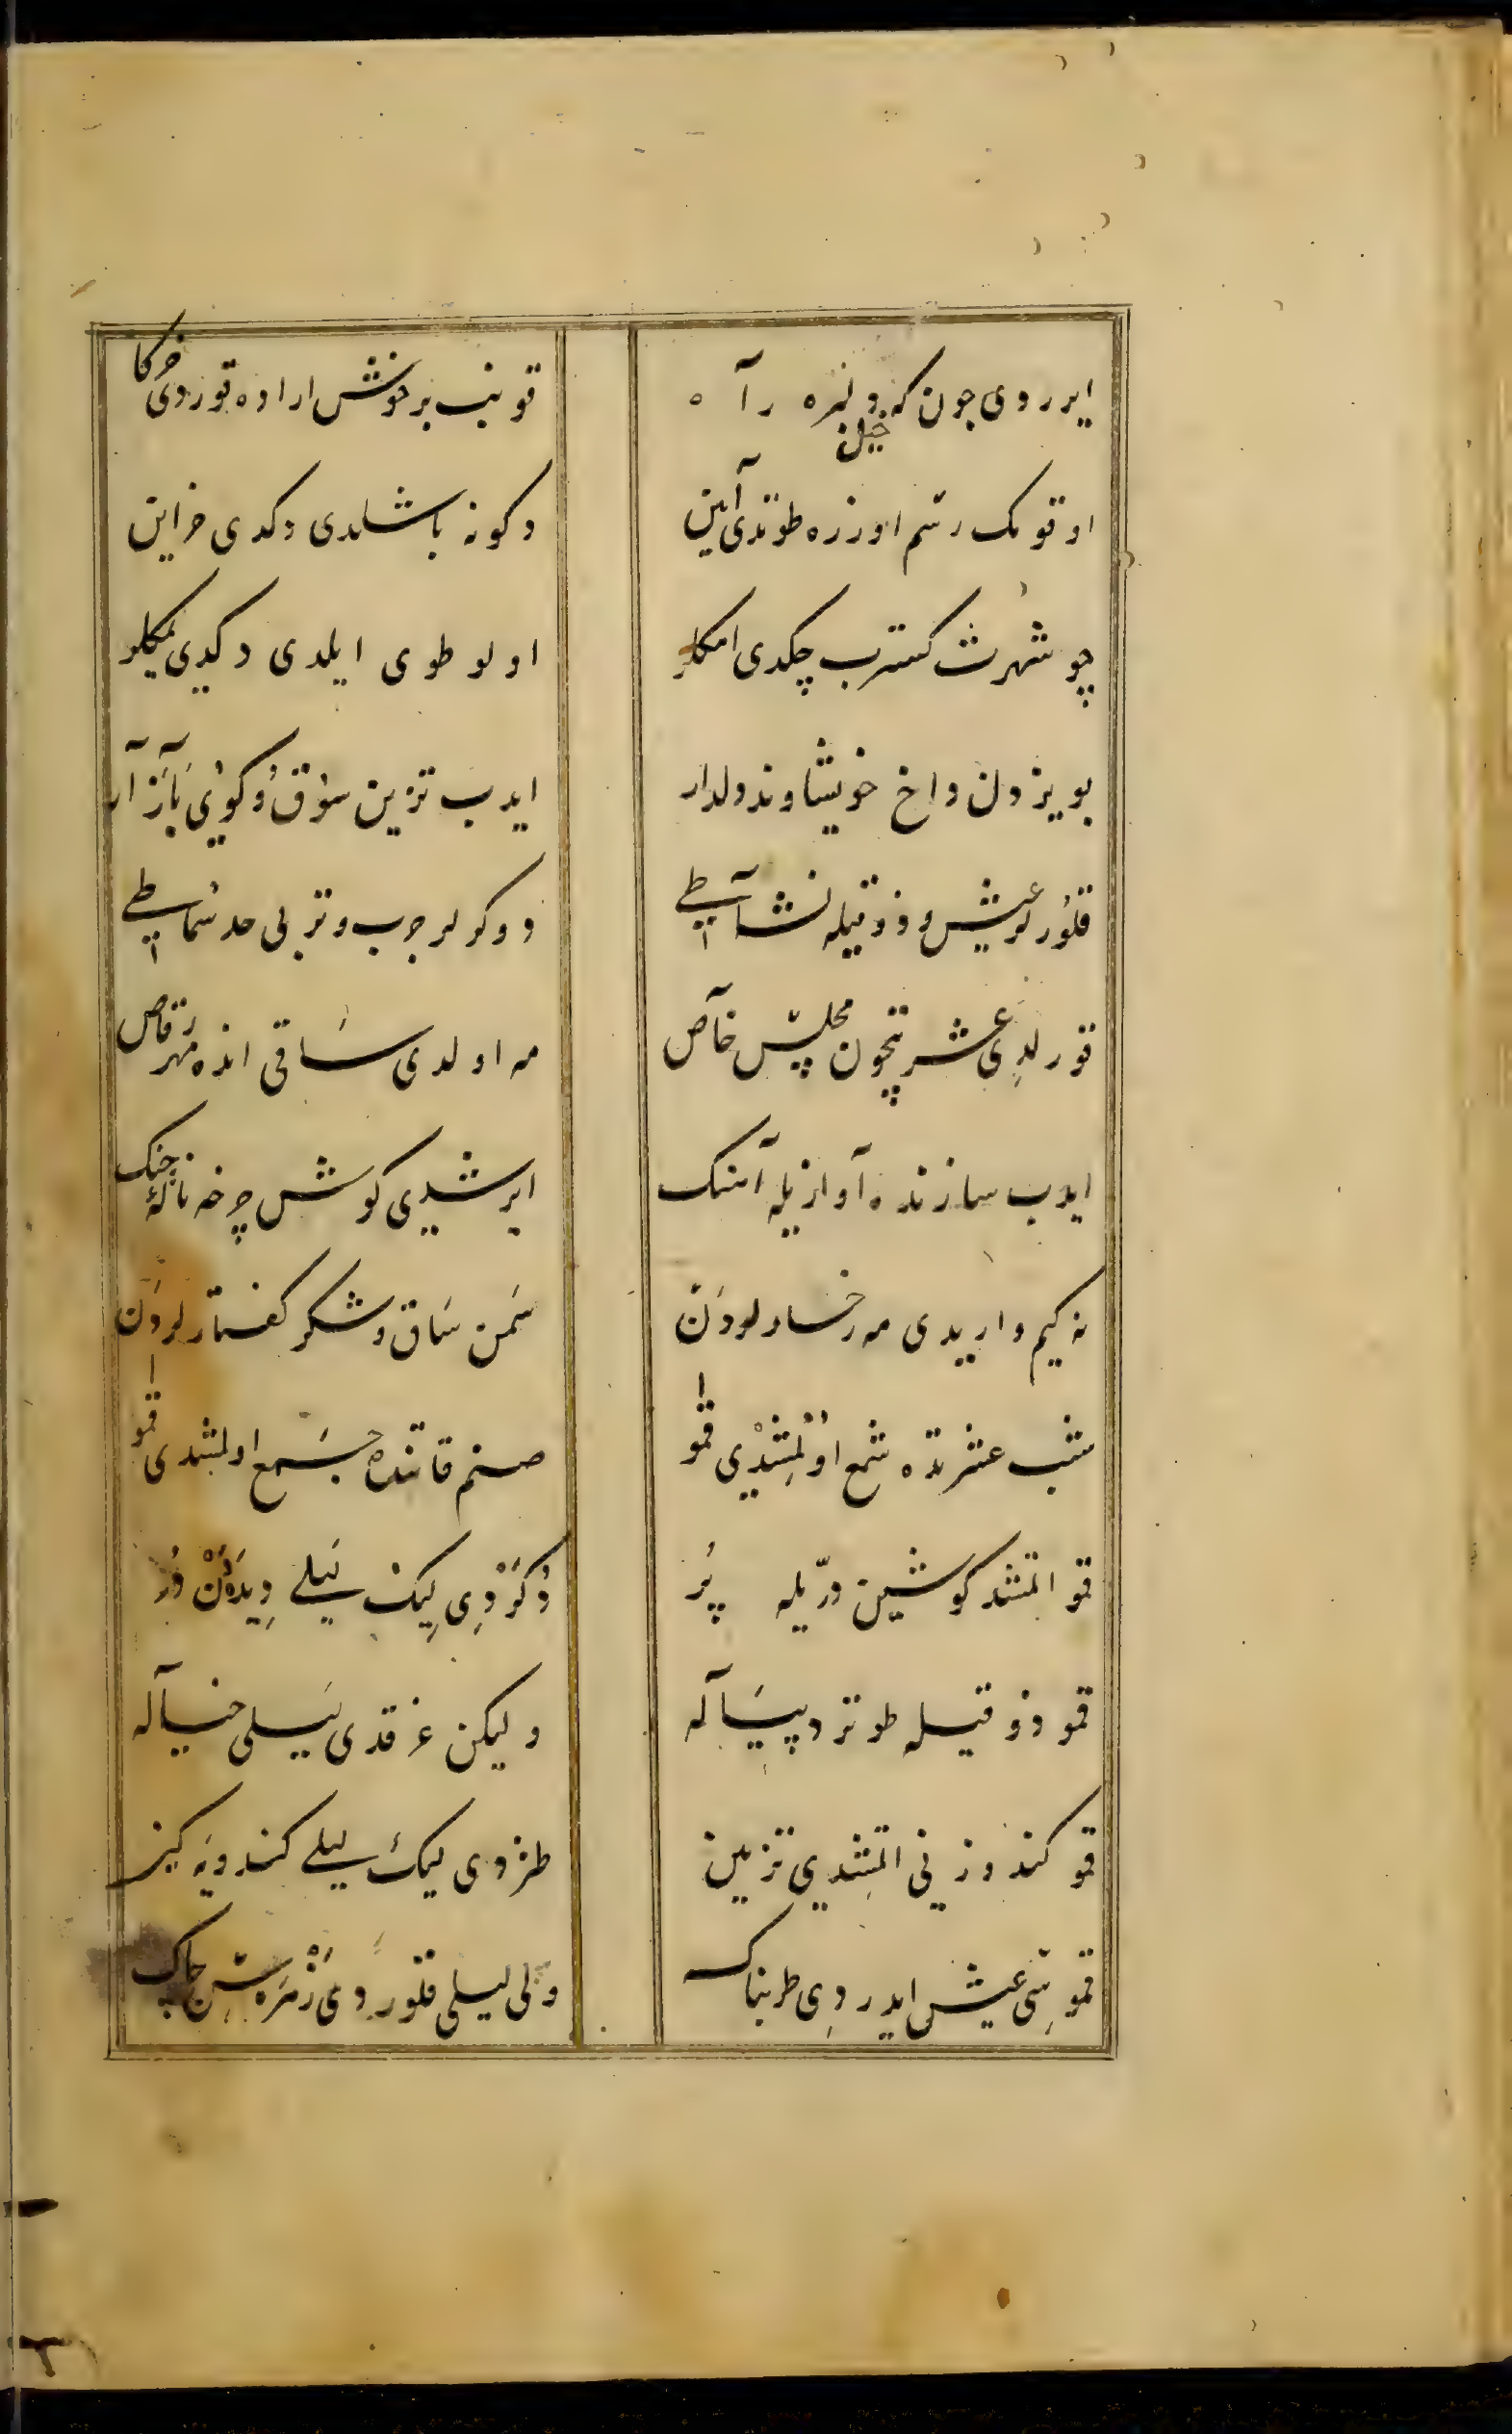 ایرردی چون که ولره راه
خیلن
قونب بر خوش اراده قوردی خرکا
اوقومک رسم اوزره طوتدی آیین
دکونه باشلدی دکدی خزاین
چو شهرت کسترب چکدی امکلر
اولو طوی ایلدی دکدی یمکلر
بویزدن داخ خویشاوند دلدار
ایدب تزیین سوق و کوی بازار
قلورلر عیش و ذوقیله نشاطی
دوکرلر چرب و تر بی حد سماطی
قورلدی عشرتیچون مجلس خاص
مه اولدی ساقی انده مهر رقاص
ایدب سازنده آوازیله آهنک
ایرشدی کوش چرخه نالهٔ چنک
نه کیم واریدی مه رخسارلردن
سمن ساق و شکر کفتارلردن
شب عشرتده شمع اولمشدی قمو
صنم قاتنده جمع اولمشدی قمو
قمو اتمشد کوشین درّیله پر
دکردی لیک لیلی دیده‌دن در
قمو ذوقیله طوتردی پیاله
ولیکن غرقدی لیلی خیاله
قمو کندوزنی اتمشدی تزیین
طتردی لیک لیلی کندویه کین
قموسی عیش ایدردی طربناک
ولی لیلی قلوردی زمره‌سن چاک